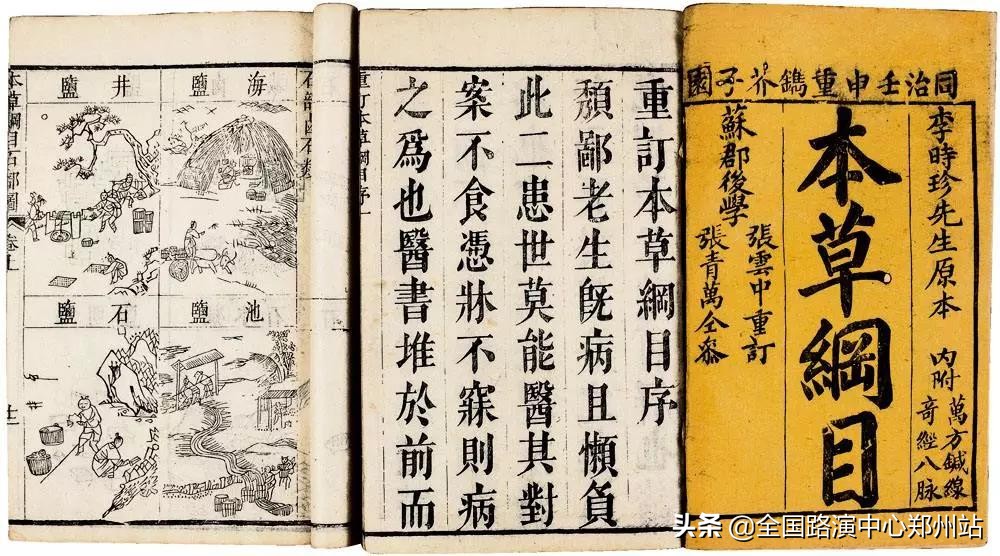 同治壬申重鐫芥子園
李時珍先生原本
內附
萬方鍼線
奇經八脉
本草綱目
蘇郡後學
張雲中重訂
張青萬仝參
重訂本草綱目序
頽鄙老生旣病且懶負
此二患世莫能醫其對
案不食憑牀不寐則病
之爲也醫書堆於前而
重訂本草綱目序 一
石部鹵石類
海鹽
井鹽
池鹽
石鹽
本草綱目石部圖 卷上
头条 @全国路演中心郑州站